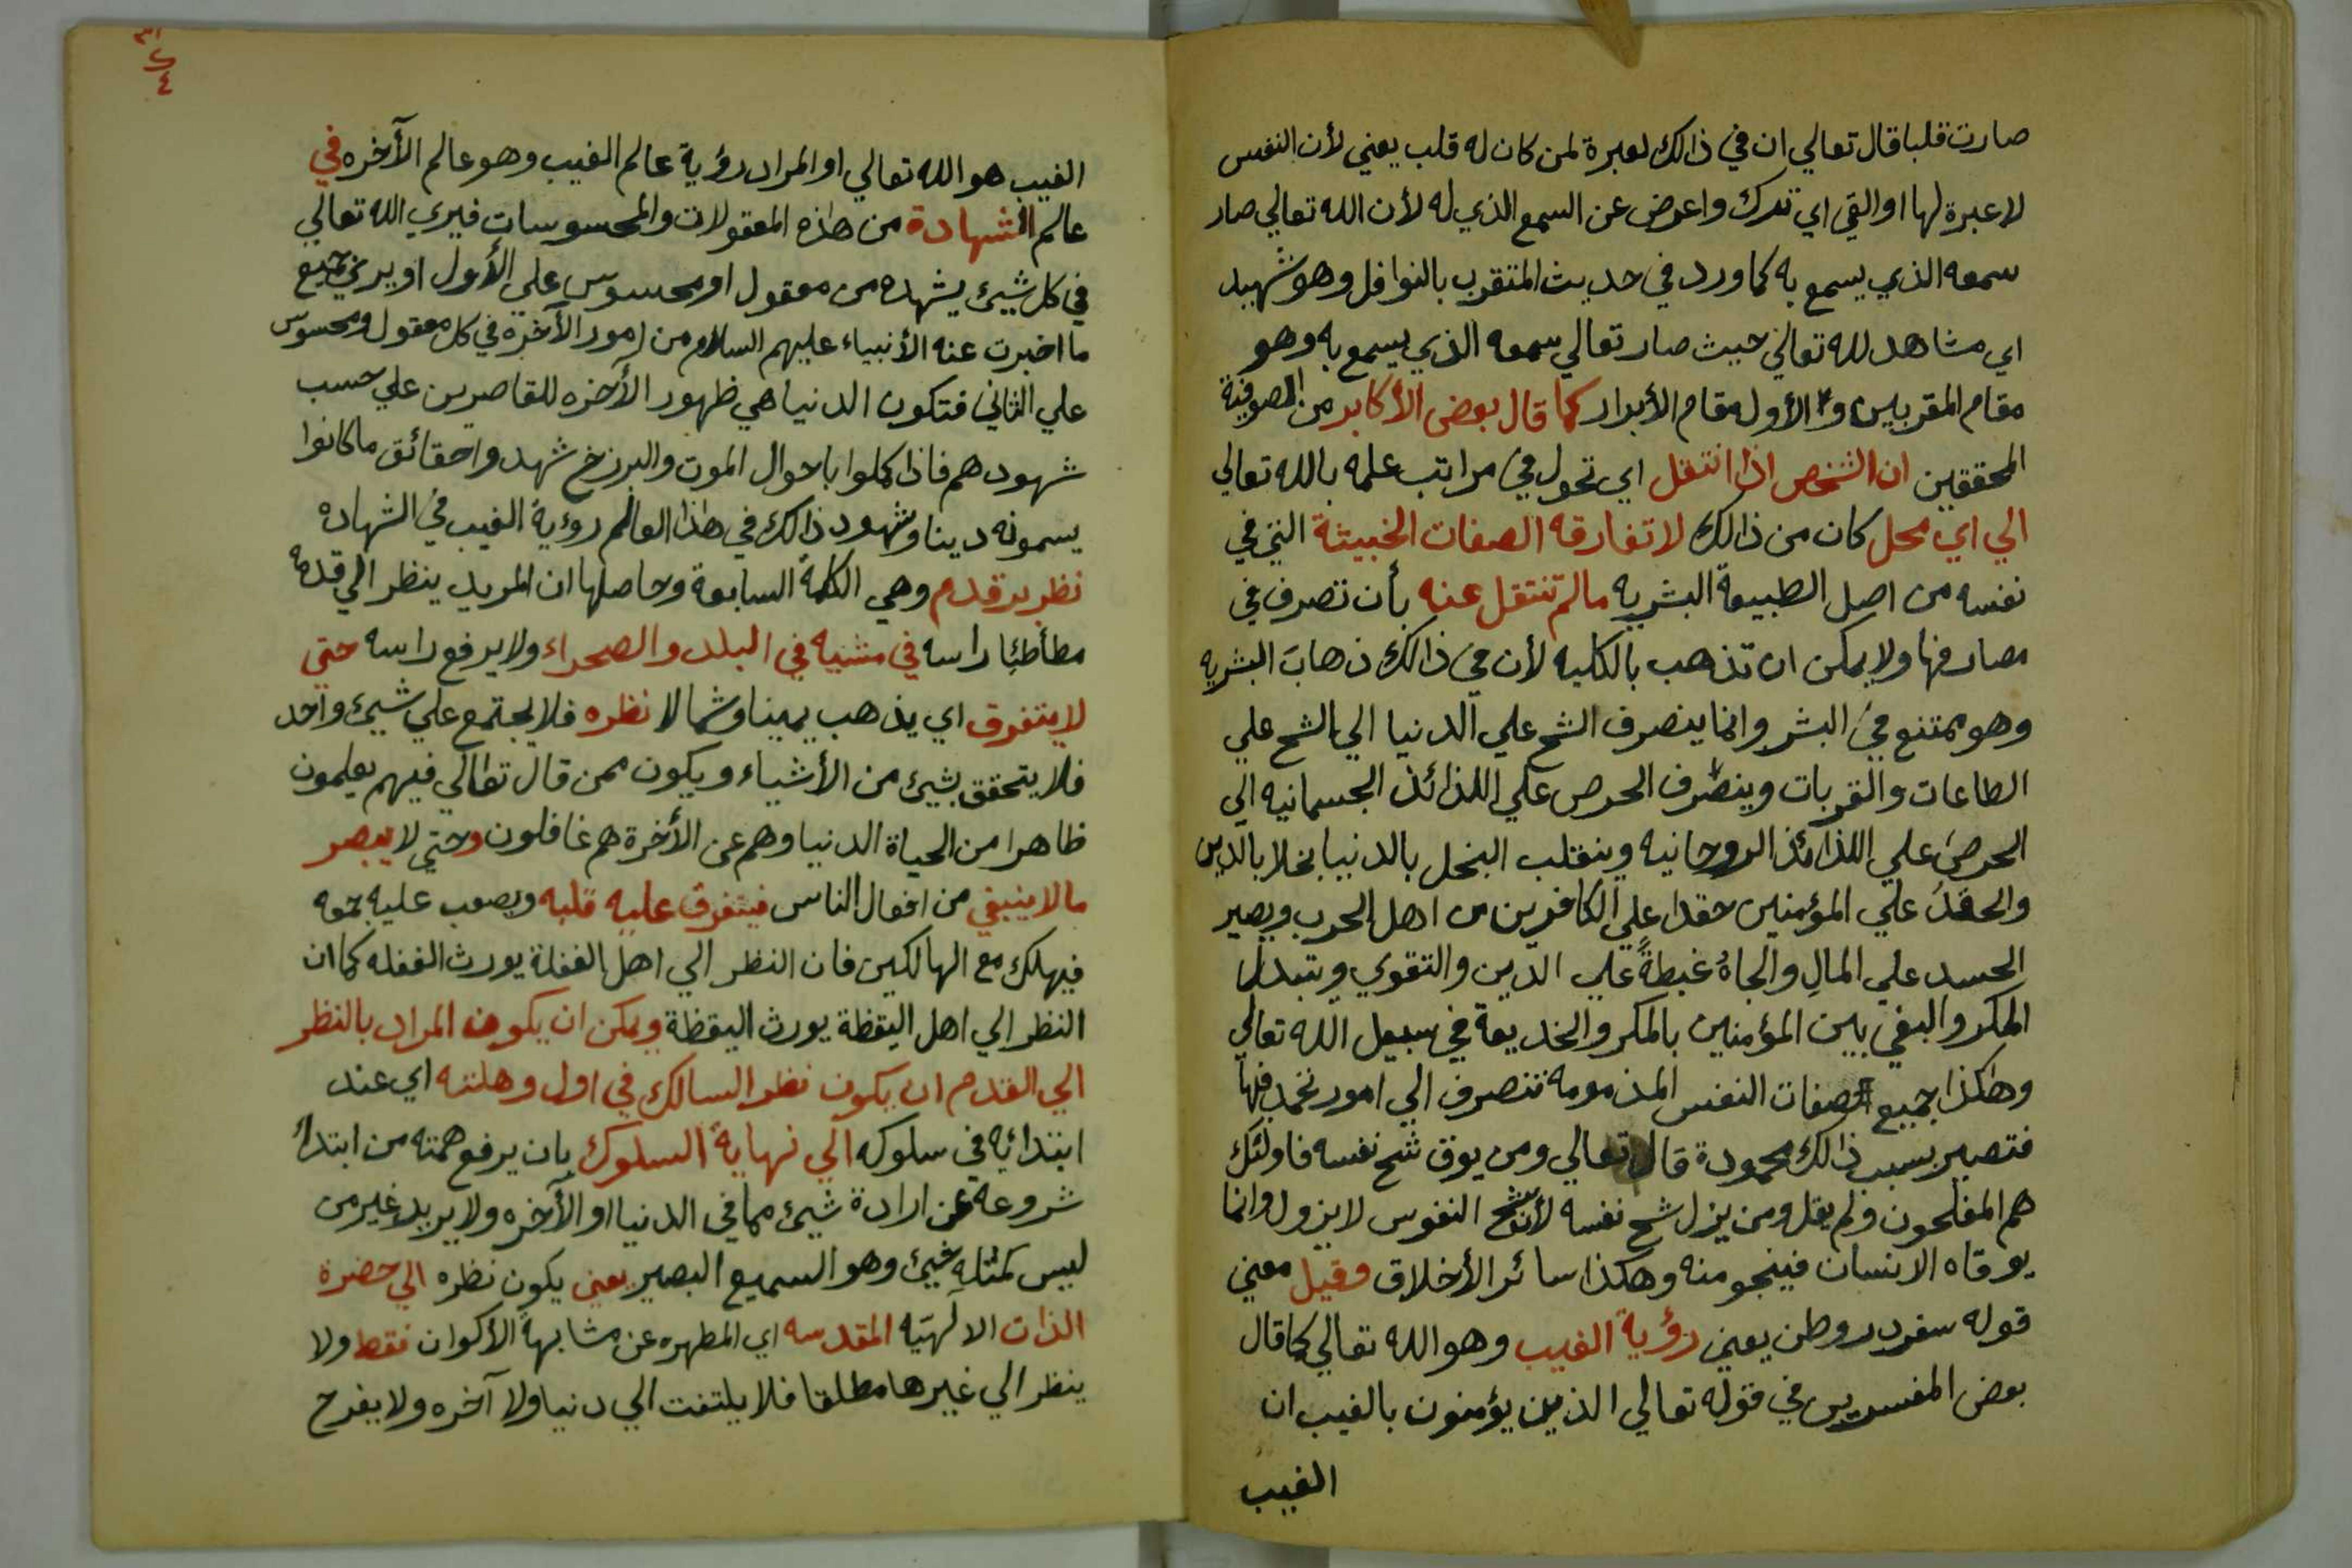 صارت قلبا قال تعالي ان في ذالك لعبرة لمن كان له قلب يعني لأن النفس
لا عبرة لها او القي اي تدرك واعرض عن السمع الذي له لأن الله تعالي صار
سمعه الذي يسمع به كما ورد في حديث المتقرب بالنوافل وهو شهيد
اي مشاهد لله تعالي حيث صار تعالي سمعه الذي يسمع به وهو
مقام المقربين والأول مقام الأبرار كما قال بعض الأكابر من الصوفية
المحققين ان الشخص اذا انتقل اي تحول في مراتب علمه بالله تعالي
الي اي محل كان من ذالك لا تفارقه الصفات الخبيثة التي في
نفسه من اصل الطبيعة البشريه مالم تنتقل عنه بأن تصرف في
مصارفها ولا يمكن ان تذهب بالكليه لأن في ذالك ذهاب البشريه
وهو ممتنع في البشر وانما ينصرف الشح علي الدنيا الي الشح علي
الطاعات والقربات وينصرف الحرص علي اللذائذ الجسمانيه الي
الحرص علي اللذائذ الروحانيه وينقلب البخل بالدنيا بخلا بالدين
والحقدُ علي المؤمنين حقدا علي الكافرين من اهل الحرب ويصير
الحسد علي المالِ والجاهُ غبطةً علي الدين والتقوي ويتبدل
المكر والبغي بين المؤمنين بالمكر والخديعة في سبيل الله تعالي
وهكذا جميع صفات النفس المذمومه تنصرف الي امور تحمد فيها
فتصير بسبب ذالك محمودة قال تعالي ومن يوق شح نفسه فاولئك
هم المفلحون ولم يقل ومن يزل شح نفسه لأن شح النفوس لا يزول وانما
يوقاه الانسان فينجو منه وهكذا سائر الأخلاق وقيل معني
قوله سفر در وطن يعني رؤية الغيب وهو الله تعالي كما قال
بعض المفسرين في قوله تعالي الذين يؤمنون بالغيب ان
الغيب
الغيب هو الله تعالي او المراد رؤية عالم الغيب وهو عالم الآخره في
عالم الشهادة من هذه المعقولات والمحسوسات فيري الله تعالي
في كل شيئ يشهده من معقول او محسوس علي الأول او يري جميع
ما اخبرت عنه الأنبياء عليهم السلام من امور الآخره في كل معقول ومحسوس
علي الثاني فتكون الدنيا هي ظهور الآخره للقاصرين علي حسب
شهودهم فاذا كملوا باحوال الموت والبرزخ شهدوا حقائق ما كانوا
يسمونه دينا وشهود ذالك في هذا العالم رؤية الغيب في الشهاده
نظر بر قدم وهي الكلمة السابعة وحاصلها ان المريد ينظر الي قدمه
مطأطئا راسه في مشيه في البلد والصحراء ولا يرفع راسه حتي
لا يتفرق اي يذهب يمينا وشمالا نظره فلا يجتمع علي شيئ واحد
فلا يتحقق بشيئ من الأشياء ويكون ممن قال تعالي فيهم يعلمون
ظاهرا من الحياة الدنيا وهم عن الأخرة هم غافلون وحتي لا يبصر
مالا ينبغي من افعال الناس فيتفرق عليه قلبه ويصعب عليه جمعه
فيهلك مع الهالكين فان النظر الي اهل الغفلة يورث الغفله كما ان
النظر الي اهل اليقظة يورث اليقظة ويمكن ان يكون المراد بالنظر
الي القدم ان يكون نظر السالك في اول وهلته اي عند
ابتدائه في سلوكه الي نهاية السلوك بان يرفع همته من ابتداء
شروعه عن ارادة شيئ مما في الدنيا او الآخره ولا يريد غير من
ليس كمثله شيئ وهو السميع البصير يعني يكون نظره الي حضرة
الذات الالهيه المقدسه اي المطهره عن مشابهة الأكوان فقط ولا
ينظر الي غيرها مطلقا فلا يلتفت الي دنيا ولا آخره ولا يفرح